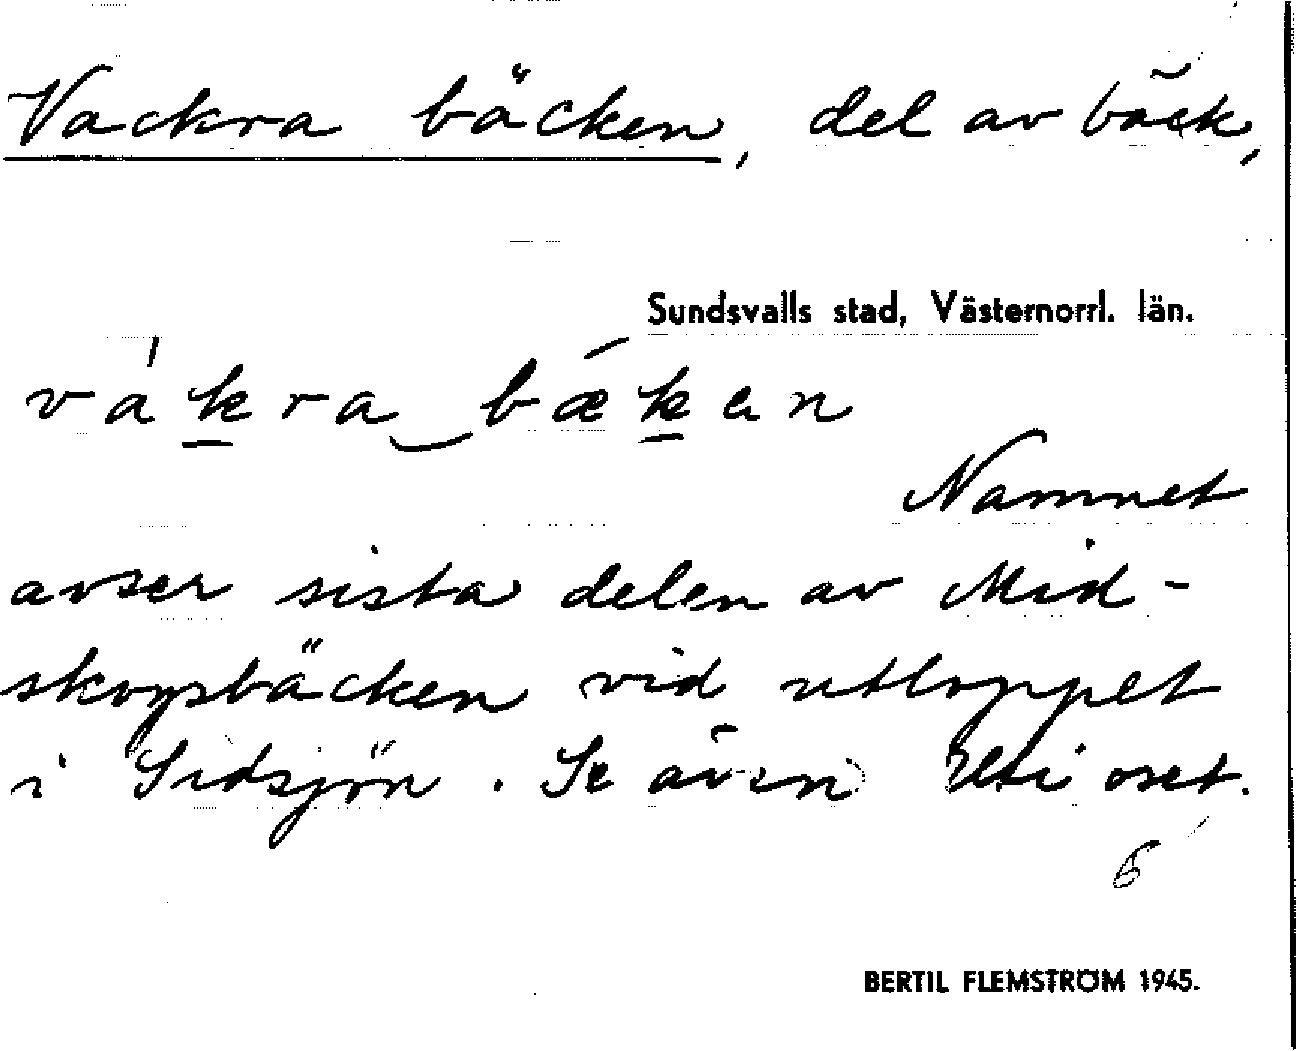 Vackra bäcken, del av bäck,
Sundsvalls stad, Västernorrl. län.
vákra bǽken
Namnet
avser sista delen av Mid-
skogsbäcken vid utloppet
i Sidsjön. Se även Uti oset.
6
BERTIL FLEMSTRÖM 1945.